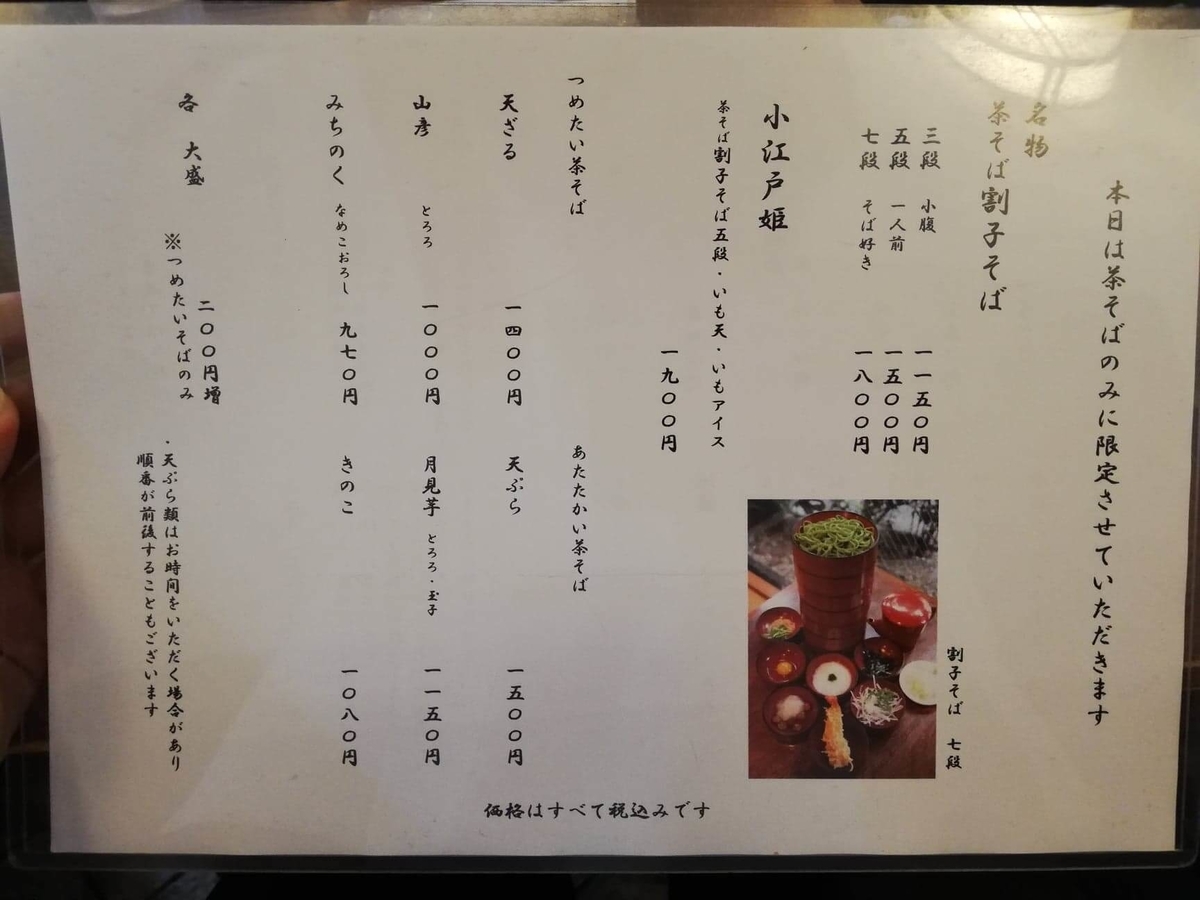 本日は茶そばのみに限定させていただきます
名物
茶そば割子そば
三段 小腹 一一五〇円
五段 一人前 一五〇〇円
七段 そば好き 一八〇〇円
小江戸姫
茶そば割子そば五段・いも天・いもアイス
一九〇〇円
割子そば 七段
つめたい茶そば
天ざる 一四〇〇円
山彦 とろろ 一〇〇〇円
みちのく なめこおろし 九七〇円
各 大盛 二〇〇円増
※つめたいそばのみ
あたたかい茶そば
天ぷら 一五〇〇円
月見芋 とろろ・玉子 一一五〇円
きのこ 一〇八〇円
・天ぷら類はお時間をいただく場合があり
順番が前後することもございます
価格はすべて税込みです